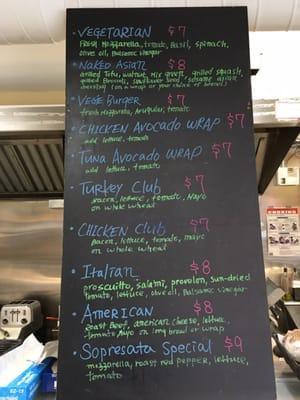 • VEGETARIAN $7
FResh Mozzarella, tomato, Basil, spinach,
olive oil, Balsamic vinegar
• NAKED ASIAN $8
grilled Tofu, walnut, mix green, grilled squash,
grilled Broccoli, sunflower seed, sesame asian
dressing (on a wrap or your choice of bread)
• VEGE BURGER $7
fresh mozzarella, arugular, tomato
• CHICKEN Avocado WRAP $7
add lettuce, tomato
• Tuna Avocado WRAP $7
add lettuce, tomato
• Turkey Club $7
Bacon, lettuce, tomato, Mayo
on whole wheat
• CHICKEN Club $7
Bacon, lettuce, tomato, mayo
on whole wheat
• Italian $8
proscuitto, salami, provolon, sun-dried
tomato, lettuce, olive oil, Balsamic vinegar
• AMERICAN $8
Roast Beef, american cheese, lettuce,
tomato, Mayo on any bread or wrap
• Sopresata Special $9
mozzarella, roast red pepper, lettuce,
tomato